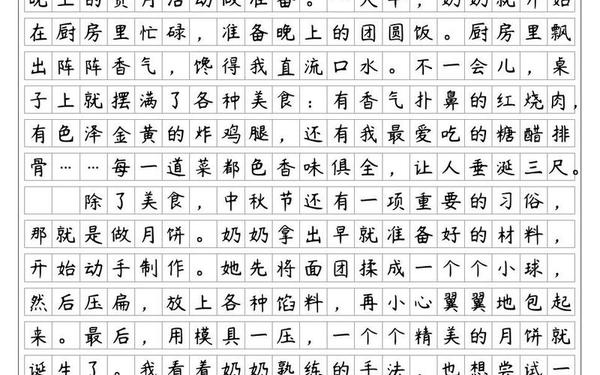 晚上的赏月活动做准备。一大早，奶奶就开始
在厨房里忙碌，准备晚上的团圆饭。厨房里飘
出阵阵香气，馋得我直流口水。不一会儿，桌
子上就摆满了各种美食：有香气扑鼻的红烧肉，
有色泽金黄的炸鸡腿，还有我最爱吃的糖醋排
骨……每一道菜都色香味俱全，让人垂涎三尺。
除了美食，中秋节还有一项重要的习俗，
那就是做月饼。奶奶拿出早就准备好的材料，
开始动手制作。她先将面团揉成一个个小球，
然后压扁，放上各种馅料，再小心翼翼地包起
来。最后，用模具一压，一个个精美的月饼就
诞生了。我看着奶奶熟练的手法，也想尝试一